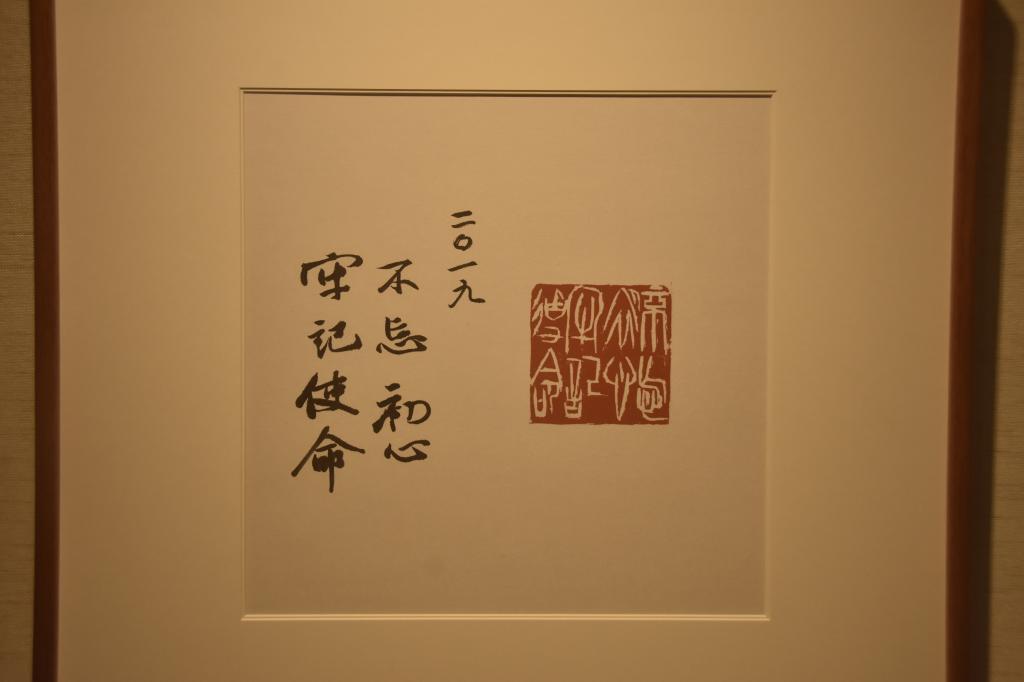 不忘初心
牢记使命
二〇一九
不忘初心
牢记使命